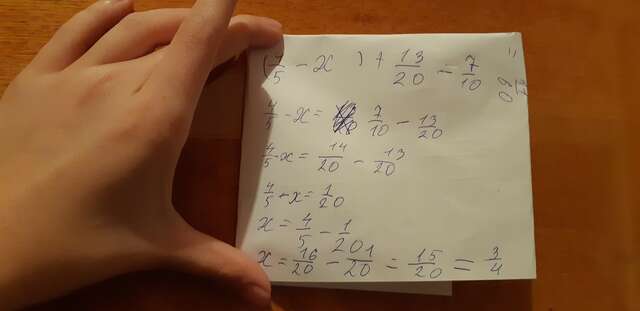 (4/5 - x ) + 13/20 = 7/10
4/5 - x = 7/10 - 13/20
4/5 - x = 14/20 - 13/20
4/5 + x = 1/20
x = 4/5 - 1/20
x = 16/20 - 1/20 = 15/20 = 3/4